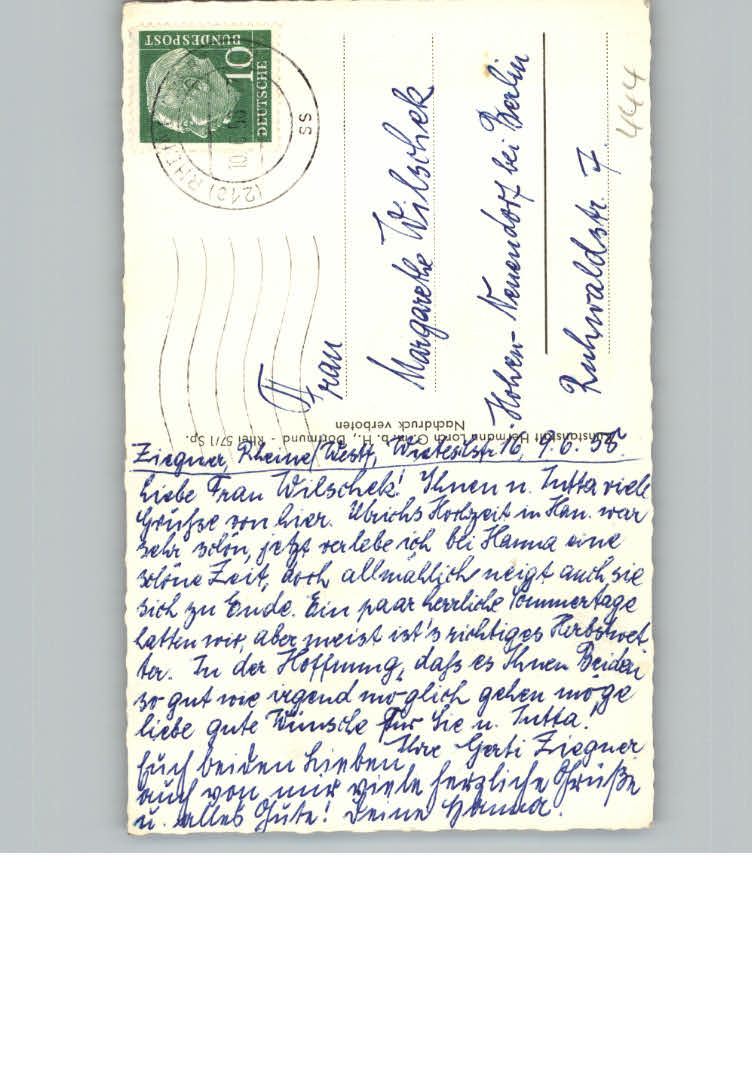 DEUTSCHE
BUNDESPOST
10
SS
444
Frau
Margarethe Wilschek
Hohen-Neuendorf bei Berlin
Ruhwaldstr. 7.
Kunstanstalt Hermann Lorch G.m.b.H., Dortmund - Rhei 57/1 Sp.
Nachdruck verboten
Ziegner, Rheine/Westf, 16, 9.6.58.
Liebe Frau Wilschek! Ihnen u. Jutta viele
Grüsse von hier. Ulrichs Hochzeit in Han. war
sehr schön, jetzt verlebe ich bei Hanna eine
schöne Zeit, doch allmählich neigt auch sie
sich zu Ende. Ein paar herrliche Sommertage
hatten wir, aber meist ist's richtiges Herbstwet
ter. In der Hoffnung, dass es Ihnen Beiden
so gut wie irgend möglich gehen möge
liebe gute Wünsche für Sie u. Jutta!
Ihre Gerti Ziegner
Euch beiden Lieben
auch von mir viele herzliche Grüße
u. alles Gute! Deine Hanna.